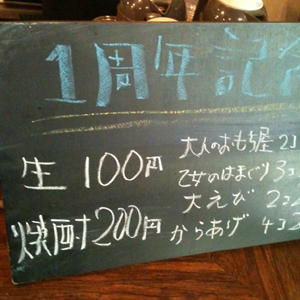 1周年記念
大人のおもち屋 2コ
生 100円
乙女のはまぐり 3コ
大えび 2コ
焼酎 200円
からあげ 4コ